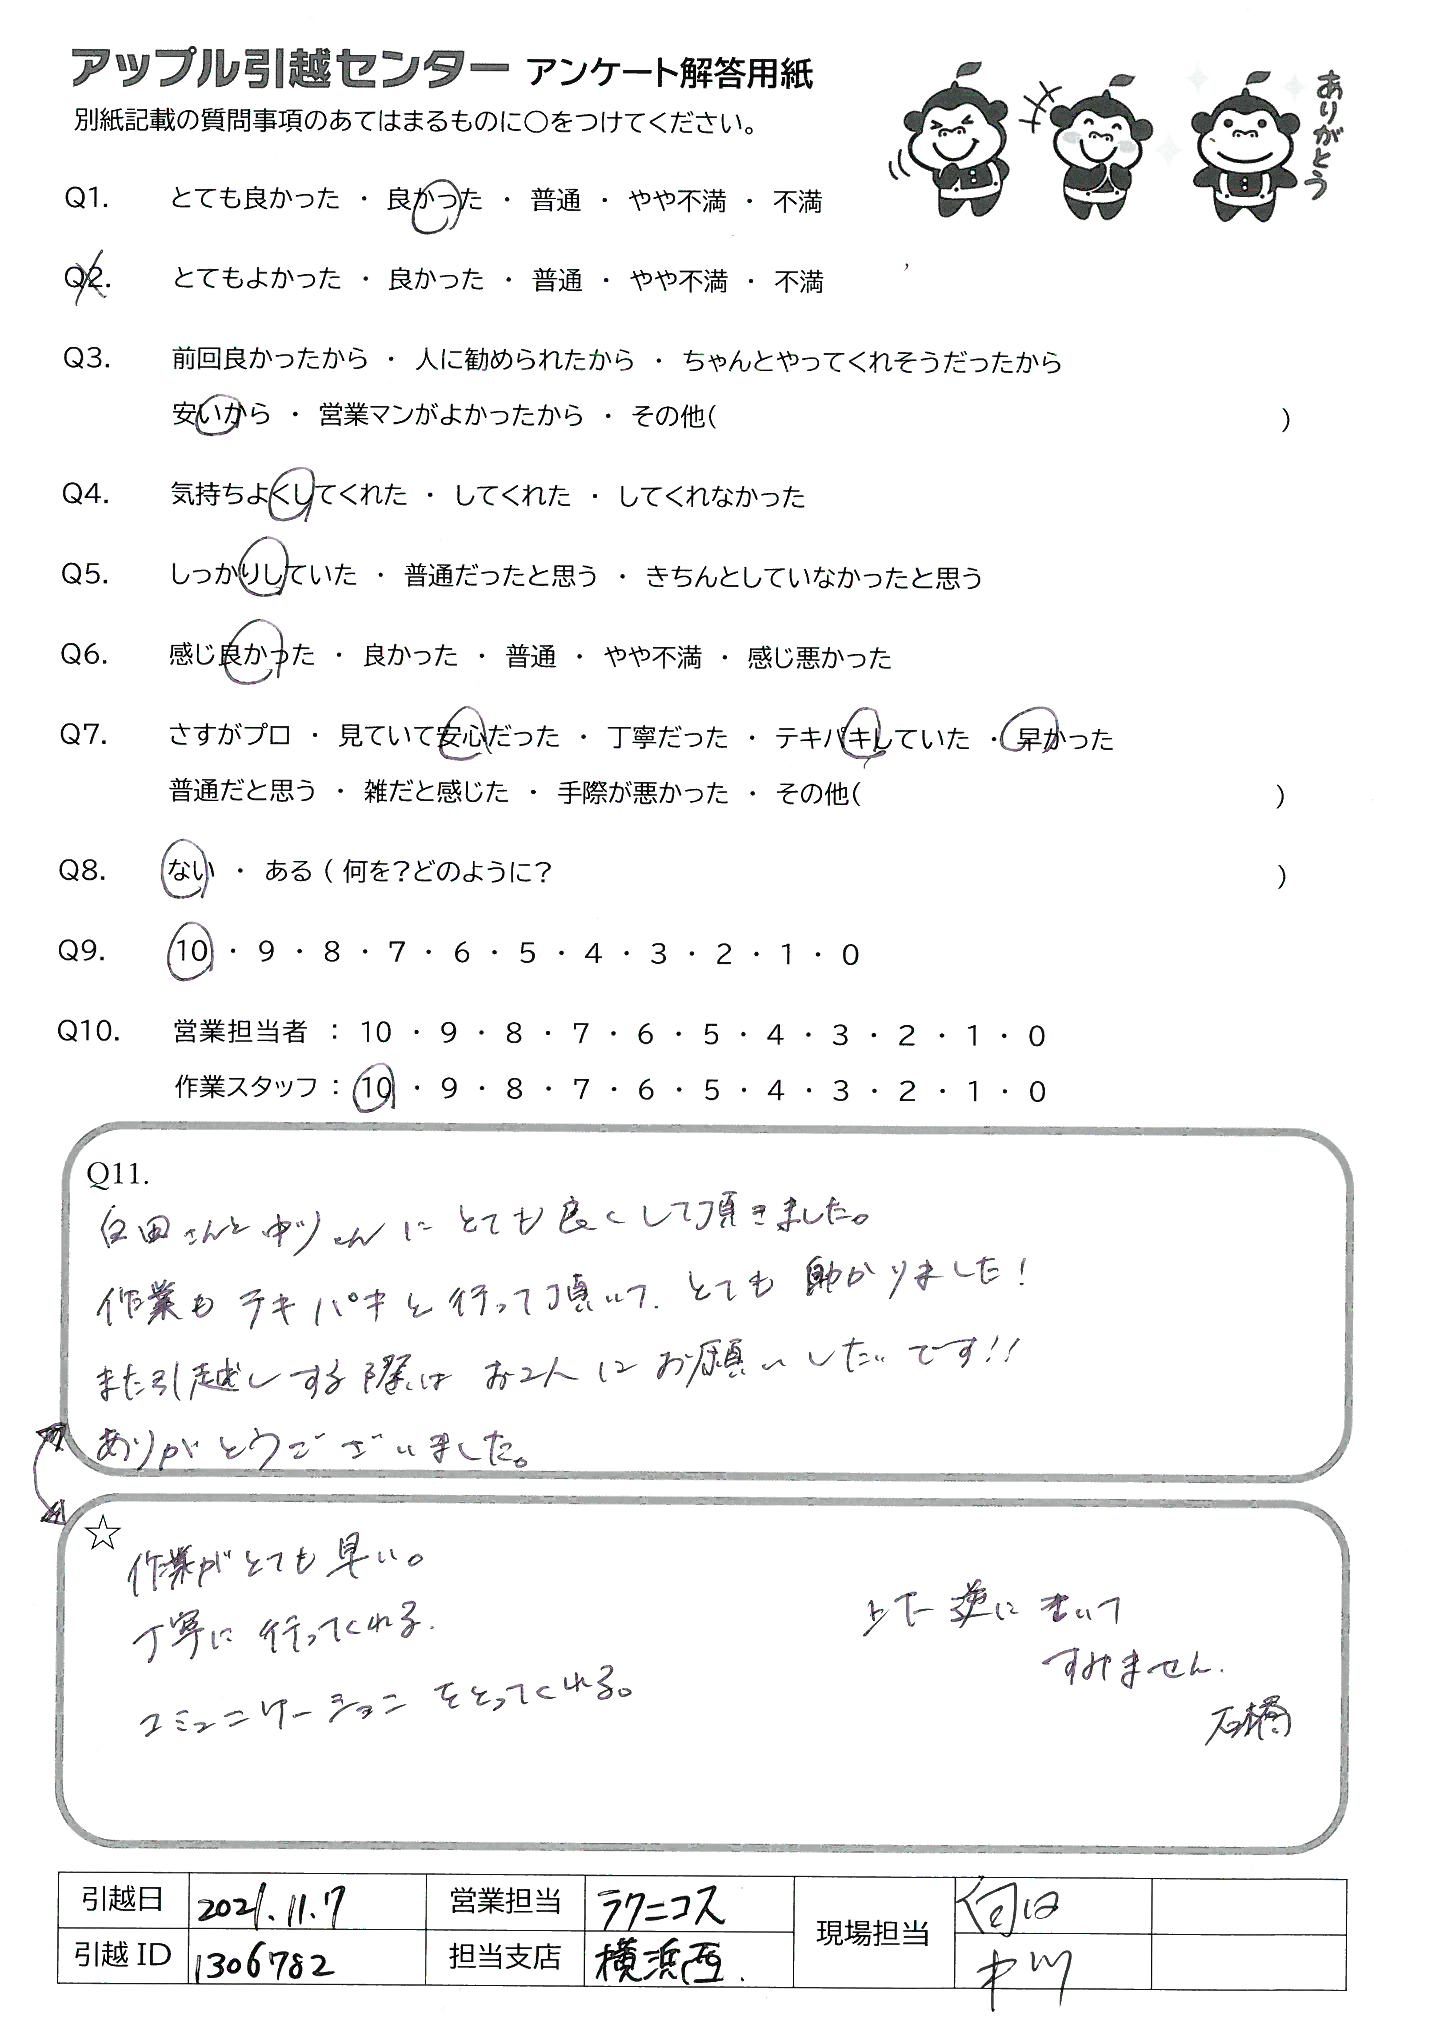 アップル引越センター アンケート解答用紙
別紙記載の質問事項のあてはまるものに○をつけてください。
ありがとう
Q1. とても良かった ・ 良かった ・ 普通 ・ やや不満 ・ 不満
Q2. とてもよかった ・ 良かった ・ 普通 ・ やや不満 ・ 不満
Q3. 前回良かったから ・ 人に勧められたから ・ ちゃんとやってくれそうだったから
安いから ・ 営業マンがよかったから ・ その他( )
Q4. 気持ちよくしてくれた ・ してくれた ・ してくれなかった
Q5. しっかりしていた ・ 普通だったと思う ・ きちんとしていなかったと思う
Q6. 感じ良かった ・ 良かった ・ 普通 ・ やや不満 ・ 感じ悪かった
Q7. さすがプロ ・ 見ていて安心だった ・ 丁寧だった ・ テキパキしていた ・ 早かった
普通だと思う ・ 雑だと感じた ・ 手際が悪かった ・ その他( )
Q8. ない ・ ある ( 何を?どのように? )
Q9. 10 ・ 9 ・ 8 ・ 7 ・ 6 ・ 5 ・ 4 ・ 3 ・ 2 ・ 1 ・ 0
Q10. 営業担当者 : 10 ・ 9 ・ 8 ・ 7 ・ 6 ・ 5 ・ 4 ・ 3 ・ 2 ・ 1 ・ 0
作業スタッフ : 10 ・ 9 ・ 8 ・ 7 ・ 6 ・ 5 ・ 4 ・ 3 ・ 2 ・ 1 ・ 0
Q11.
さんと中川さんにとても良くして頂きました。
作業もテキパキと行って頂いて、とても助かりました!
また引越しする際はお2人にお願いしたいです!!
ありがとうございました。
☆
作業がとても早い。
丁寧に行ってくれる。
コミュニケーションをとってくれる。
上下逆に書いて
すみません。
石橋
引越日 2021.11.7 営業担当 ラクニコス 現場担当
引越ID 1306782 担当支店 横浜西. 中川